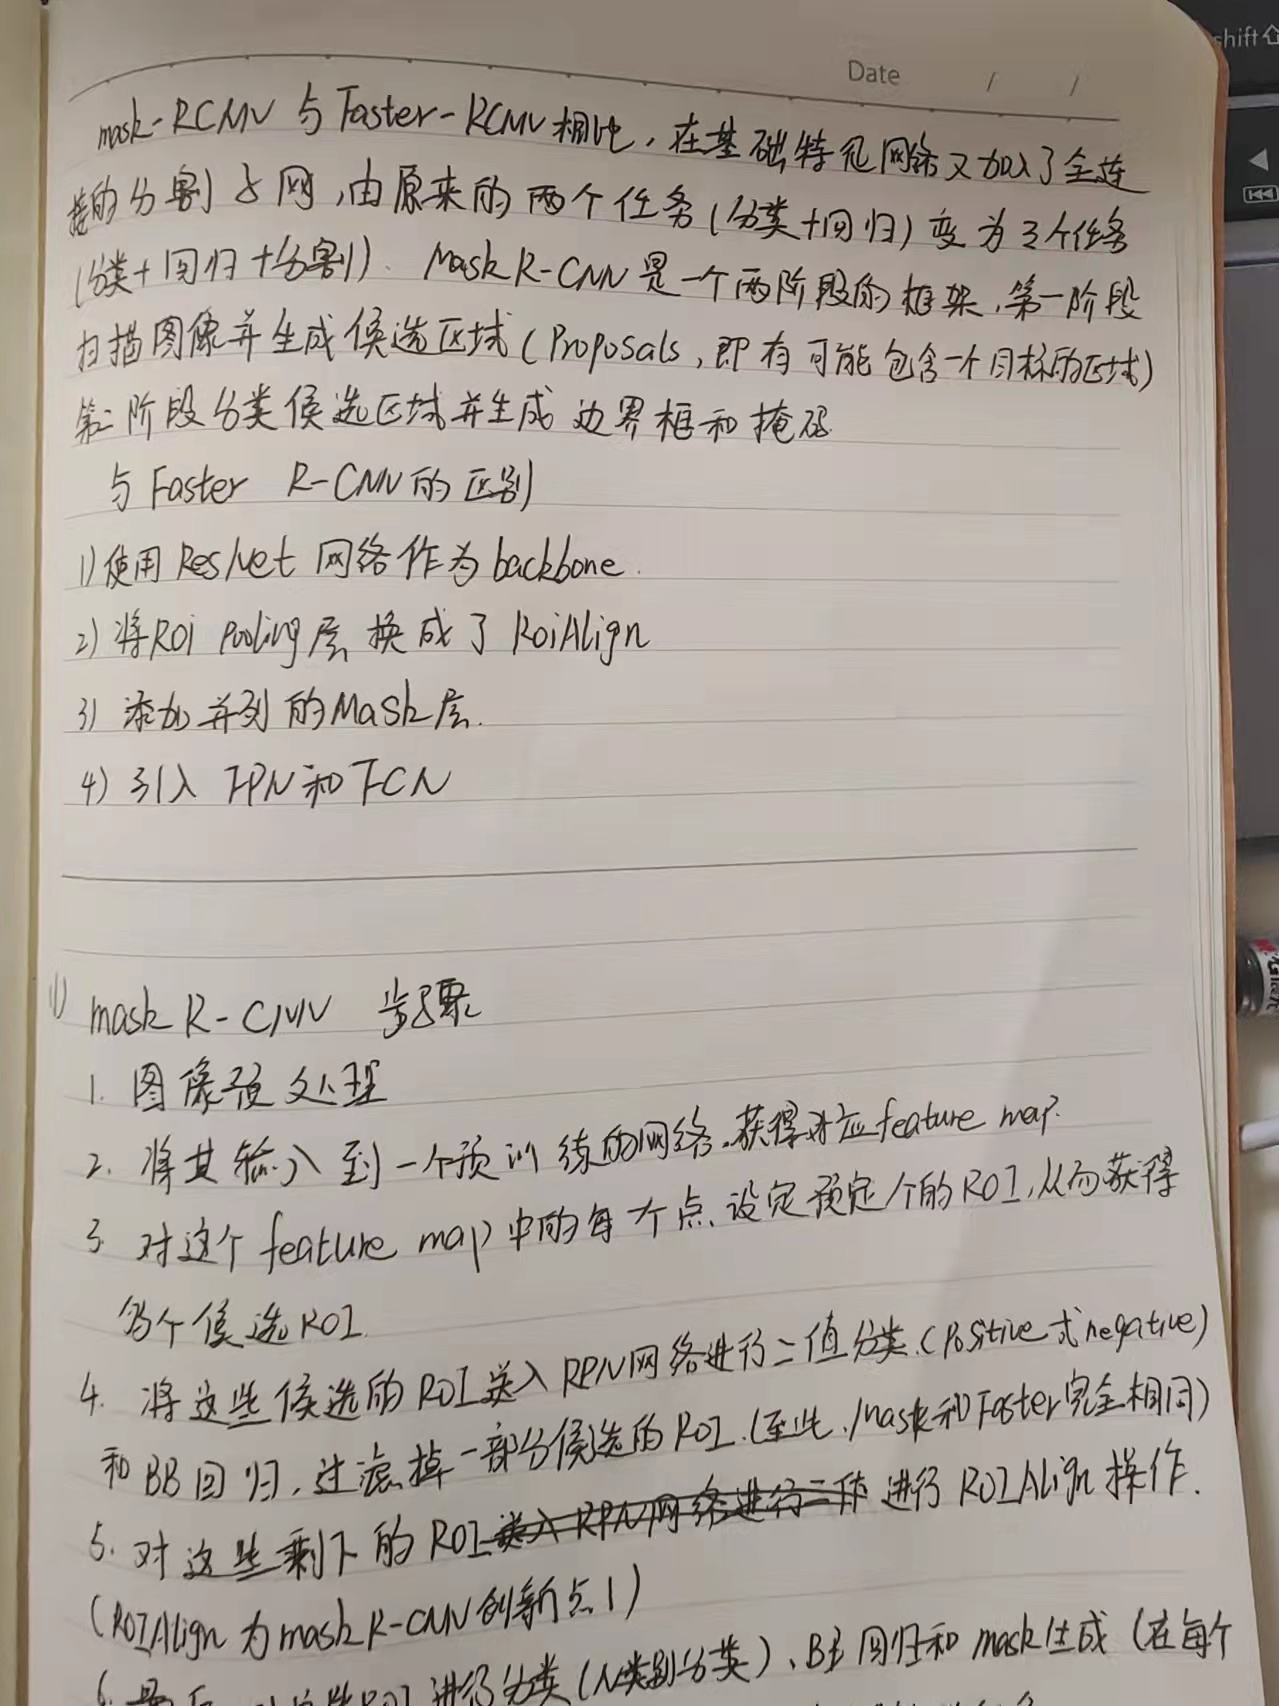 Date / /
mask-RCNN 与 Faster-RCNN相比，在基础特征网络又加入了全连
接的分割子网，由原来的两个任务(分类+回归)变为3个任务
(分类+回归+分割). Mask R-CNN是一个两阶段的框架，第一阶段
扫描图像并生成候选区域(Proposals，即有可能包含一个目标的区域)
第二阶段分类候选区域并生成边界框和掩码
与Faster R-CNN的区别
1)使用ResNet网络作为backbone.
2)将ROi Pooling层换成了RoiAlign
3)添加并列的Mask层.
4)引入FPN和FCN
1) mask R-CNN 步骤
1. 图像预处理
2. 将其输入到一个预训练的网络,获得对应feature map.
3. 对这个feature map中的每个点,设定预定个的ROI,从而获得
多个候选ROI.
4. 将这些候选的ROI送入RPN网络进行二值分类.(Positive或negative)
和BB回归,过滤掉一部分候选的ROI.(至此,Mask和Faster完全相同)
5. 对这些剩下的ROI送入RPN网络进行二值进行ROIAlign操作.
(ROIAlign为mask R-CNN创新点1)
6. 最后,对这些ROI进行分类(N类别分类)、BB回归和mask生成(在每个
shift